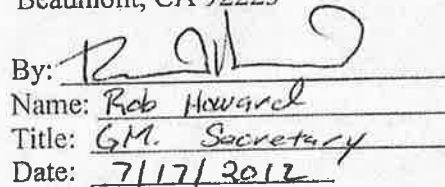 Beaumont, CA 92223
By:
Name: Rob Howard
Title: GM. Secretary
Date: 7/17/2012